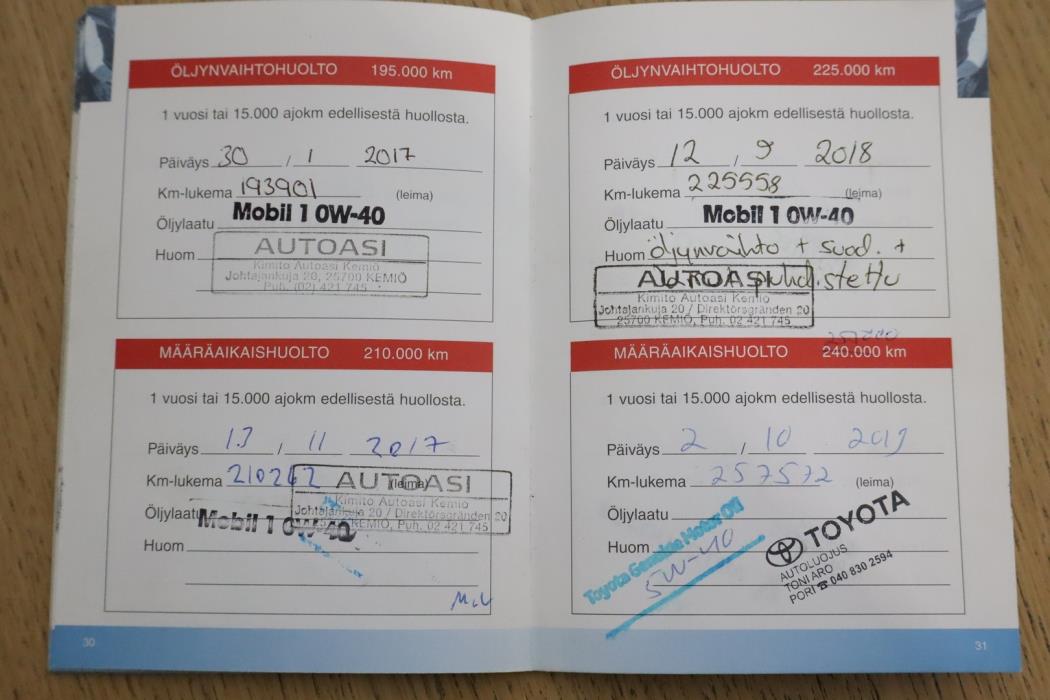 ÖLJYNVAIHTOHUOLTO 195.000 km
1 vuosi tai 15.000 ajokm edellisestä huollosta.
Päiväys 30 / 1 2017
Km-lukema 193901 (leima)
Öljylaatu Mobil 1 0W-40
Huom
AUTOASI
Kimito Autoasi Kemiö
Johtajankuja 20, 25700 KEMIÖ
Puh. (02) 421 745
MÄÄRÄAIKAISHUOLTO 210.000 km
1 vuosi tai 15.000 ajokm edellisestä huollosta.
Päiväys 13 / 11 2017
Km-lukema 210262 (leima)
AUTOASI
Kimito Autoasi Kemiö
Johtajankuja 20 / Direktörsgränden 20
25700 KEMIÖ, Puh. 02 421 745
Öljylaatu Mobil 1 0W-40
Huom
30
ÖLJYNVAIHTOHUOLTO 225.000 km
1 vuosi tai 15.000 ajokm edellisestä huollosta.
Päiväys 12 / 9 2018
Km-lukema 225558 (leima)
Öljylaatu Mobil 1 0W-40
Huom öljynvaihto + suod. +
puhdistettu
AUTOASI
Kimito Autoasi Kemiö
Johtajankuja 20 / Direktörsgränden 20
25700 KEMIÖ, Puh. 02 421 745
MÄÄRÄAIKAISHUOLTO 240.000 km
1 vuosi tai 15.000 ajokm edellisestä huollosta.
Päiväys 2 / 10 2019
Km-lukema 257572 (leima)
Öljylaatu
Huom
Toyota Genuine Motor Oil
5W-40
TOYOTA
AUTOLUOJUS
TONI ARO
PORI ☎ 040 830 2594
31